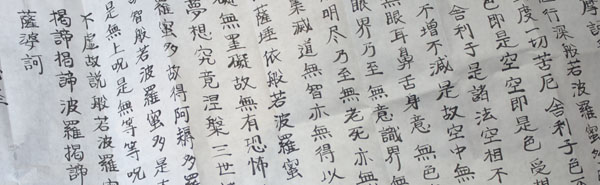 行深般若波羅蜜多
度一切苦厄 舎利子色不
色即是空空即是色 受想
舎利子是諸法空相不
不増不滅是故空中無
無眼耳鼻舌身意無色
眼界乃至無意識界無
明尽乃至無老死亦無
集滅道無智亦無得以
薩埵依般若波羅蜜
礙無罣礙故無有恐怖
夢想究竟涅槃三世
羅蜜多故得阿耨多羅
智般若波羅蜜多是
是無上呪是無等等呪
不虚故説般若波羅蜜
揭諦揭諦波羅揭諦
薩婆訶